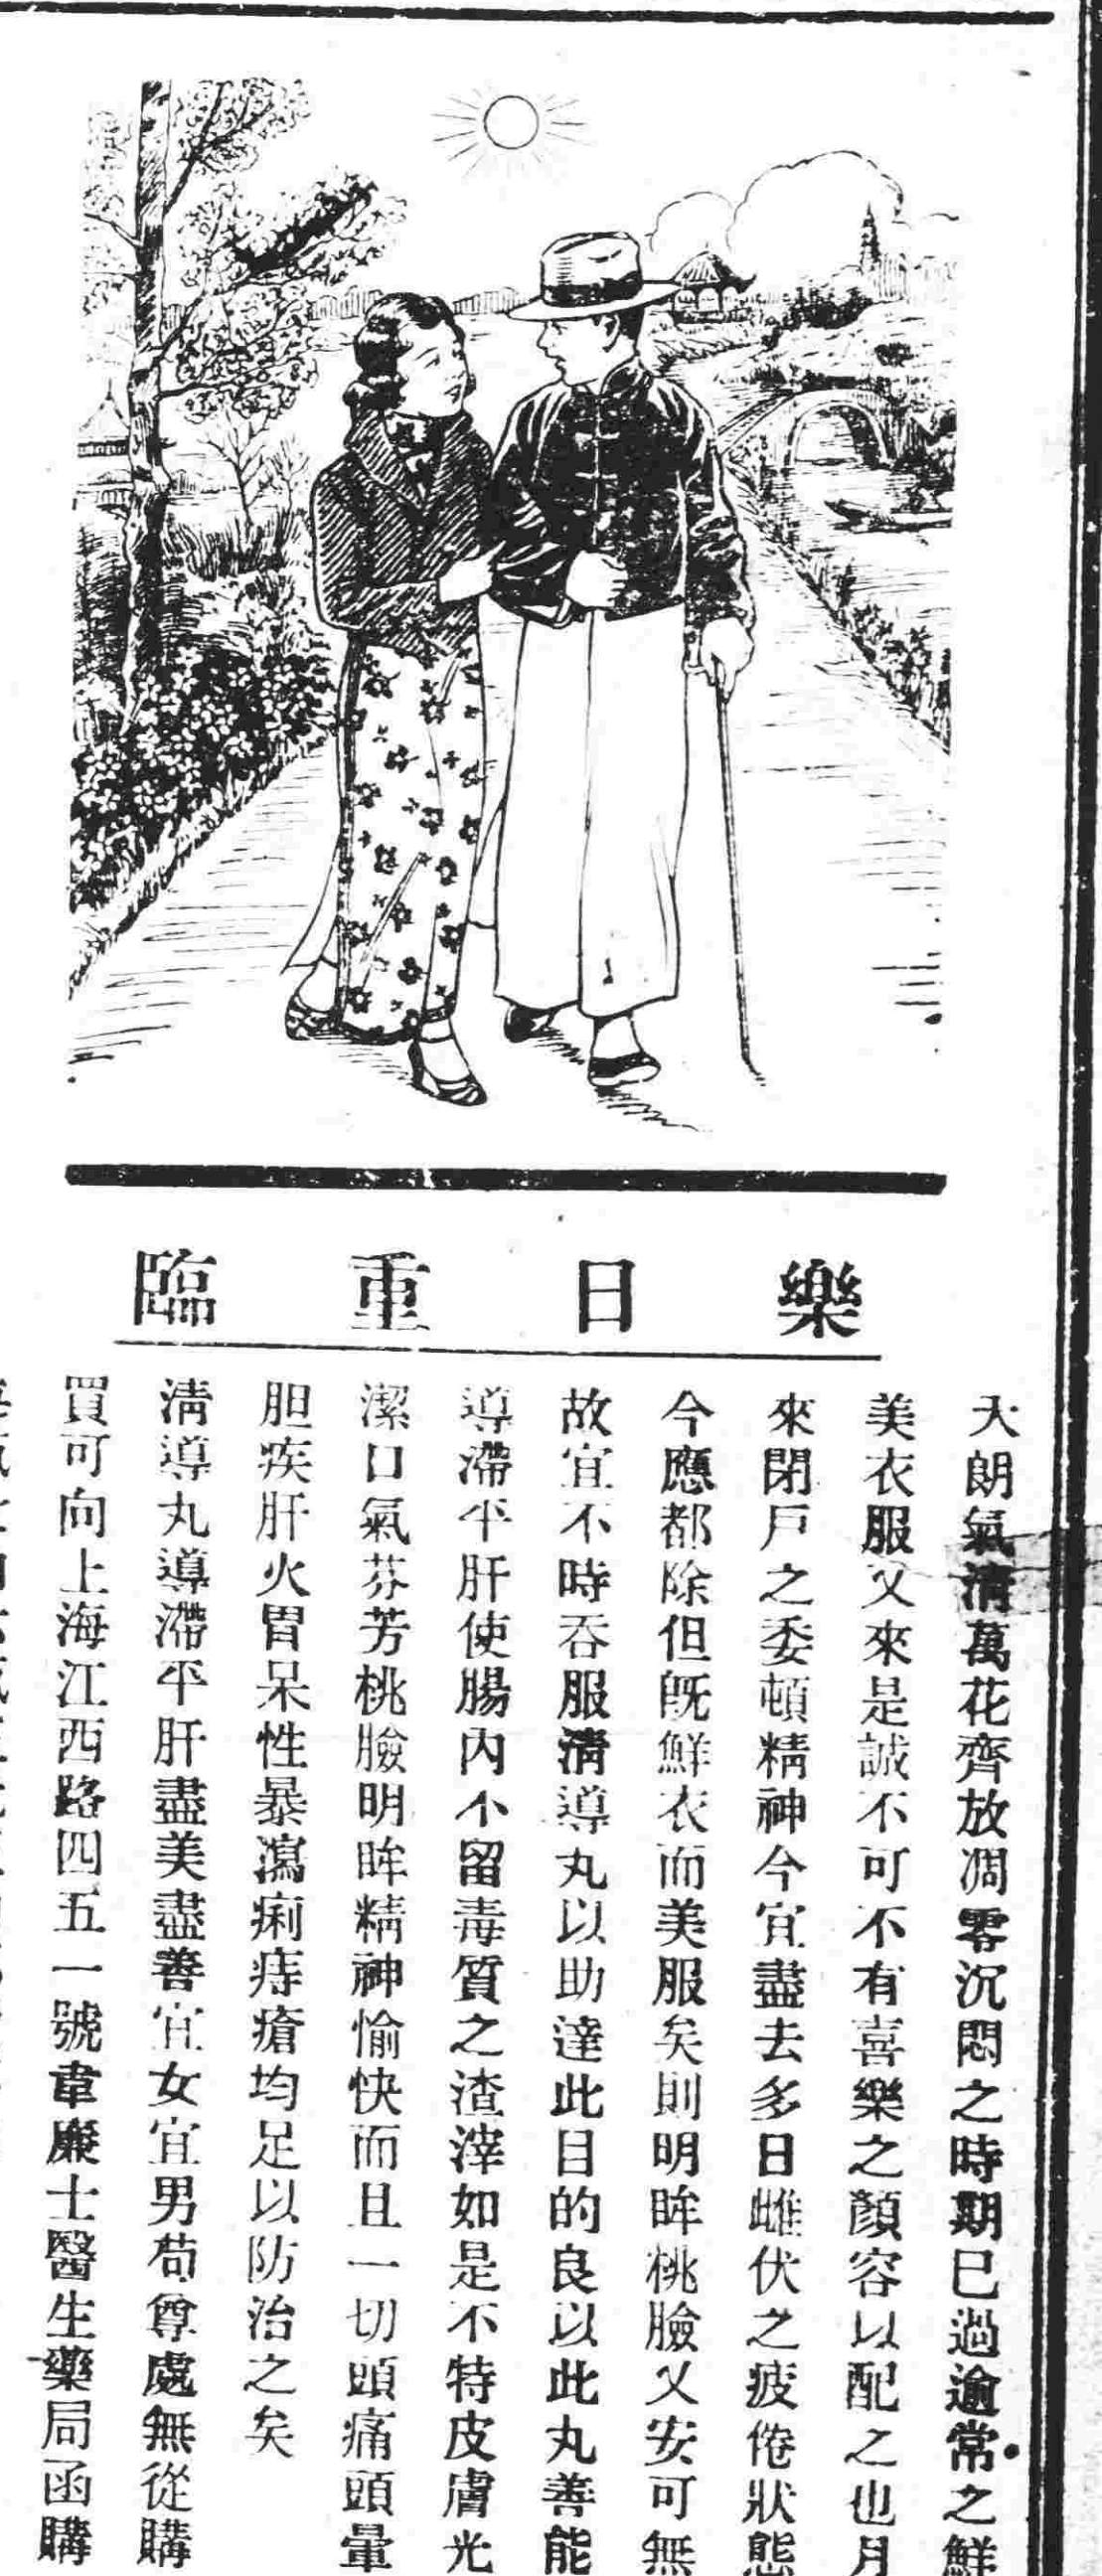 樂日重臨
天朗氣清萬花齊放凋零沉悶之時期已過逾常之鮮
美衣服又來是誠不可不有喜樂之顏容以配之也月
來閉戶之委頓精神今宜盡去多日雌伏之疲倦狀態
今應都除但既鮮衣而美服矣則明眸桃臉又安可無
故宜不時吞服清導丸以助達此目的良以此丸善能
導滯平肝使腸內不留毒質之渣滓如是不特皮膚光
潔口氣芬芳桃臉明眸精神愉快而且一切頭痛頭暈
胆疾肝火胃呆性暴瀉痢痔瘡均足以防治之矣
清導丸導滯平肝盡美盡善宜女宜男苟尊處無從購
買可向上海江西路四五一號韋廉士醫生藥局函購